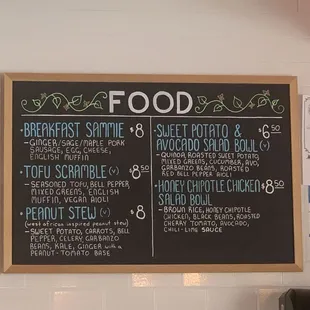 FOOD
• BREAKFAST SAMMIE $8
- GINGER/SAGE/MAPLE PORK
SAUSAGE, EGG, CHEESE,
ENGLISH MUFFIN
• TOFU SCRAMBLE (v) $8.50
- SEASONED TOFU, BELL PEPPER
MIXED GREENS, ENGLISH
MUFFIN, VEGAN AIOLI
• PEANUT STEW (v) $8
(west african inspired peanut stew)
- SWEET POTATO, CARROTS, BELL
PEPPER, CELERY, GARBANZO
BEANS, KALE, GINGER WITH A
PEANUT-TOMATO BASE
• SWEET POTATO & $6.50
AVOCADO SALAD BOWL (v)
- QUINOA, ROASTED SWEET POTATO,
MIXED GREENS, CUCUMBER, AVO,
GARBANZO BEANS, ROASTED
RED BELL PEPPER AIOLI
• HONEY CHIPOTLE CHICKEN $8.50
SALAD BOWL
- BROWN RICE, HONEY CHIPOTLE
CHICKEN, BLACK BEANS, ROASTED
CHERRY TOMATO, AVOCADO,
CHILI-LIME SAUCE